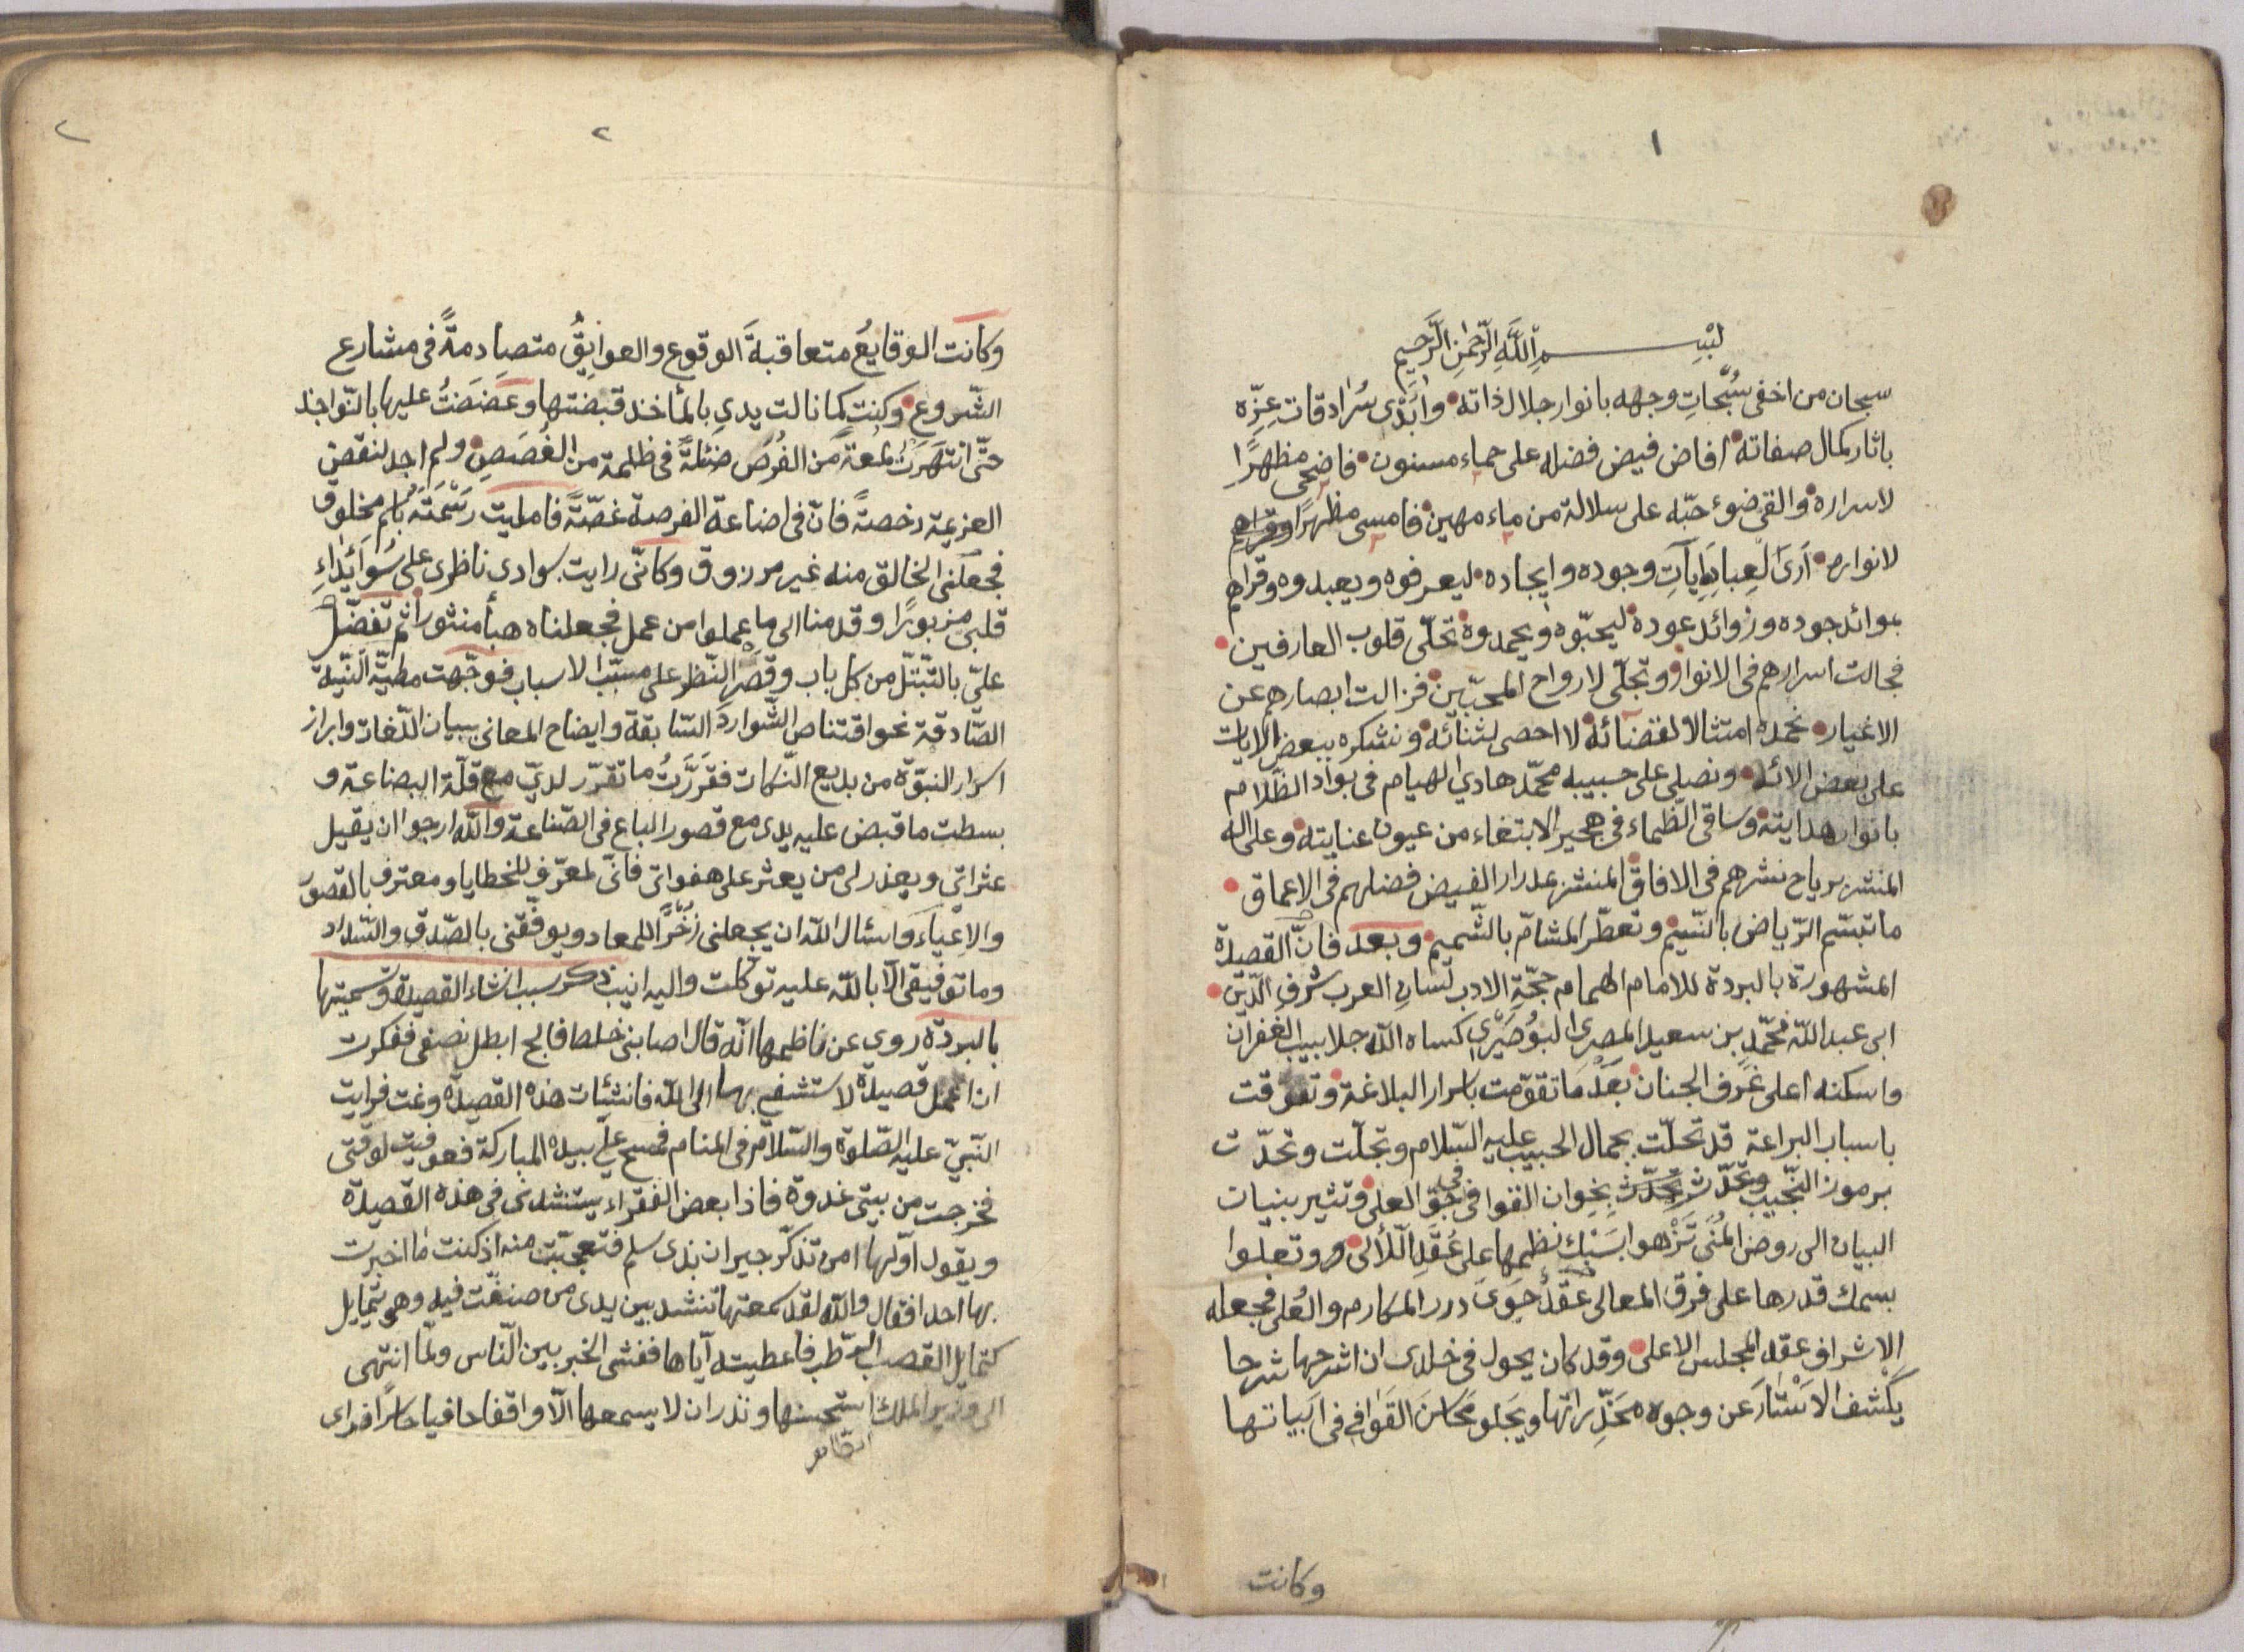 ١
بسم الله الرحمن الرحيم
سبحان من اخفى سُبُحاتِ وجهه بانوار جلال ذاته وابَدْى سُرَادقات عِزّه
باثار كمال صفاته افاض فيض فضله على حماء مسنون فاضحى مظهرًا
لاسراره والقى ضوء حبّه على سلالة من ماء مهين فامسى مظهرًا
لانواره اَرَى لعِبادِهِ اياتَ وجوده وايجاده ليعرفوه ويعبدوه وقراهم
بموائد جوده وزوائد عوده ليحبّوه ويحمدوه تحلّى قلوب العارفين
فجالت اسرارهم فى الانوار وتجلّى لارواح المحبّين فزالت ابصارهم عن
الاغيار نحمده امتثالا لقضائه لا احصى لثنائه ونشكره ببعض الايات
على بعض الائه ونصلى على حبيبه محمّد هادي الهيام فى بواد الظلام
بانوار هدايته وساقى الظماء فى هجير الابتغاء من عيون عنايته وعلى اله
المنشر برياح نشرهم فى الافاق المنشر مدرار الفيض فضلهم فى الاعماق
ما تبسّم الرّياض بالنّسيم وتعطّر المشامّ بالشّميم وبعد فانّ القصيدة
المشهورة بالبردة للامام الهمام حجّةِ الادب لسانِ العرب شرفِ الدّين
ابى عبد الله محمّد بن سعيد المصرى البوُصَيْرى كساه الله جلابيب الغفران
واسكنه اعلى غُرَف الجنان بعْدَ ما تقوّمت باسرار البلاغة وتفوّقت
باسباب البراعة قد تحلّت بجمال الحبيب عليه السّلام وتجلّت وتحدّت
برموز النّجيب بِخِوان القوافى فى جوّ العلى وتثير بنيات
البيان الى روض المُنَى تَزْهوا بسَبْكِ نظمها على عُقَدِ اللّألى وتعلوا
بسمك قدرها على فرق المعالى عقدٌ حَوَى درر المكارم والعُلى فجعله
الاشراف عقد المجلس الاعلى وقد كان يحول فى خلدى ان اشرحها شرحا
يكْشف الاَسْتَارَ عن وجوه مُخَدّراتها ويَجلو مَحَاسَن القَوَافى فى اَبياتها
وكانت
٢
٢
وكانت الوقايعُ متعاقبةَ الوقوع والعوايِقُ متصادمةً فى مشارع
الشّروع وكنت كما نالت يدى بالمأخذ قبضتها وعَضضتُ عليها بالنّواجذ
حتّى انتهَزتُ لمُعَةً من الفُرَص ضئلةً فى ظلمة من الغُصَصِ ولم اجد لنقض
العزيمة رخصةً فانّ فى اضاعة الفرصة غصّةً فامليت رَسْمَتَه بِاسم مخلوق
فجعلنى الخالق منه غير مرزوق وكانّى رايت بسوادى ناظرى على سُوَايَدَاءِ
قلبى مزبورًا وقدمنا الى ما عملوا من عمل فجعلناه هبأ منثورا ثم تفضّل
علىّ بالتّبتّل من كل باب وقصَر النّظر على مسبّب الاسباب فوجّهت مطيّة النّيّة
الصّادقة نحو اقتناص الشّوارد السّابقة وايضاح المعانى ببيان اللّغات وابراز
اسرار النبوّة من بديع النّكات فقَرَّرْتُ ما تقرّر لديّ مع قلّة البضاعة و
بسطت ما قبض عليه يدى مع قصور الباع فى الصّناعة والله ارجوا ان يقيل
عثراتى ويعذر لى من يعثر على هفواتى فانّى لمعرّف للخطايا ومعترف بالقصور
والاعياء واسئال الله ان يجعلنى زُخْرًا للمعاد ويوفّقنى بالصّدق والسّداد
وما توفيقى الّا بالله عليه توكّلت واليه انيب ذكر سبب انشاء القصيدة وتسميتها
بالبردة روى عن ناظمها انّه قال اصابنى خلط فالج ابطل نصفى ففكرت
ان اعمل قصيدة لاستشفع بها الى الله فانشئات هذه القصيدة ونمت فرايت
النّبىّ عليه الصّلوة والسّلام فى المنام فمسح علىّ بيده المباركة فعوفيت لوقتى
فخرجت من بيتى غدوة فاذا بعض الفقراء يستنشدنى فى هذه القصيدة
ويقول اوّلها امن تذكّر جيران بذى سلم فتعجّبت منه اذ كنت ما اخبرت
بها احدا فقال والله لقد سمعتها تنشد بين يدى من صنفّت فيه وهو يتمايل
كتمايل القصب الرّطب فاعطيته ايّاها ففشى الخبر بين النّاس ولمّا انتهى
الى وزير الملك استحسنها ونذر ان لا يسمعها الّا واقفا حافيا حاسرًا فراى